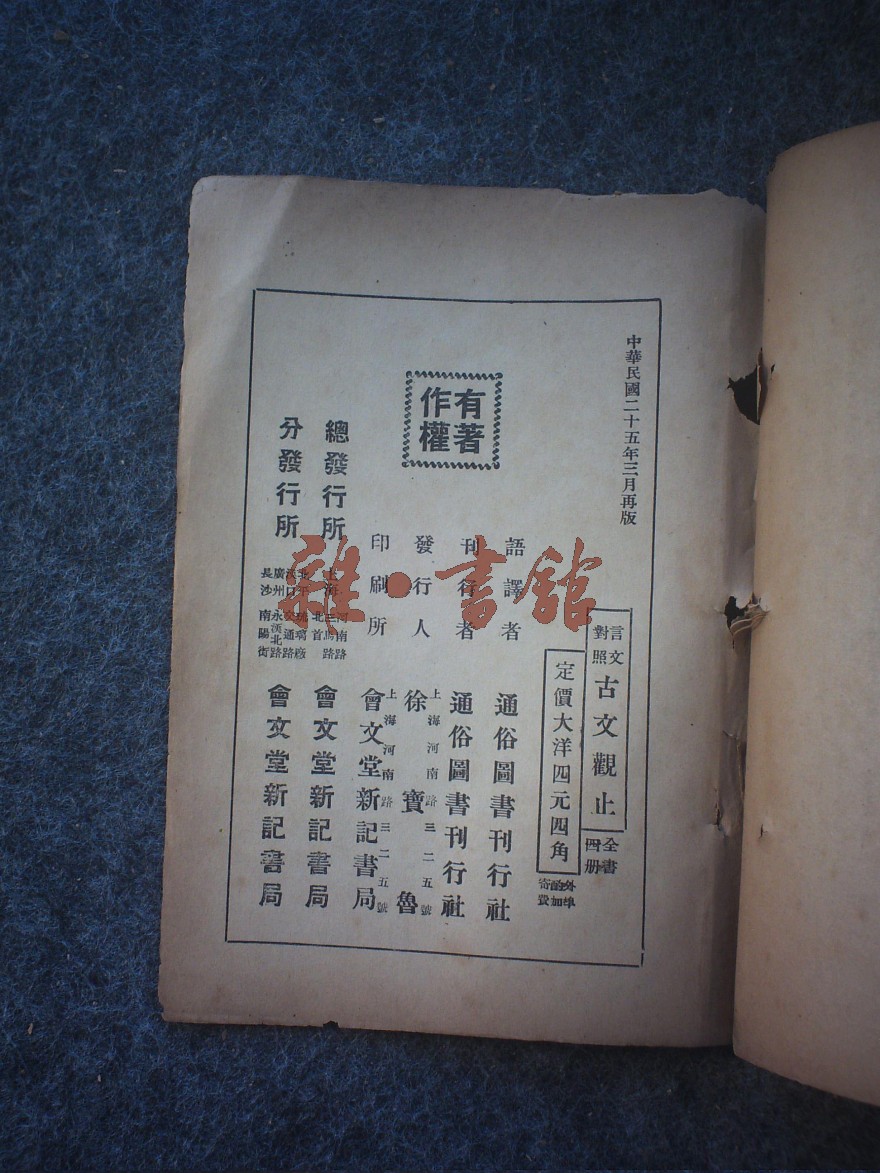 中華民國二十五年三月再版
言文對照
古文觀止
全書四册
定價大洋四元四角
外埠酌加寄費
有著作權
語譯者 通俗圖書刊行社
刊行者 通俗圖書刊行社
發行人 徐寶魯
上海河南路三二五號
印刷所 會文堂新記書局
上海河南路三二五號
總發行所 上海河南路北首 會文堂新記書局
分發行所 北平琉璃廠 漢口交通路 廣州永漢北路 長沙南陽街 會文堂新記書局
雜·書館